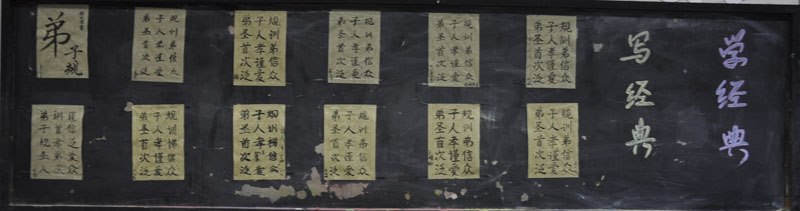 学经典
写经典
弟子规
弟子规
圣人训
首孝弟
次谨信
泛爱众
弟子规
圣人训
首孝弟
次谨信
泛爱众
弟子规
圣人训
首孝弟
次谨信
泛爱众
弟子规
圣人训
首孝弟
次谨信
泛爱众
弟子规
圣人训
首孝弟
次谨信
泛爱众
弟子规圣人
训首孝弟次
谨信泛爱众
弟子规
圣人训
首孝悌
次谨信
泛爱众
弟子规
圣人训
首孝悌
次谨信
泛爱众
弟子规
圣人训
首孝弟
次谨信
泛爱众
弟子规
圣人训
首孝弟
次谨信
泛爱众
弟子规
圣人训
首孝弟
次谨信
泛爱众